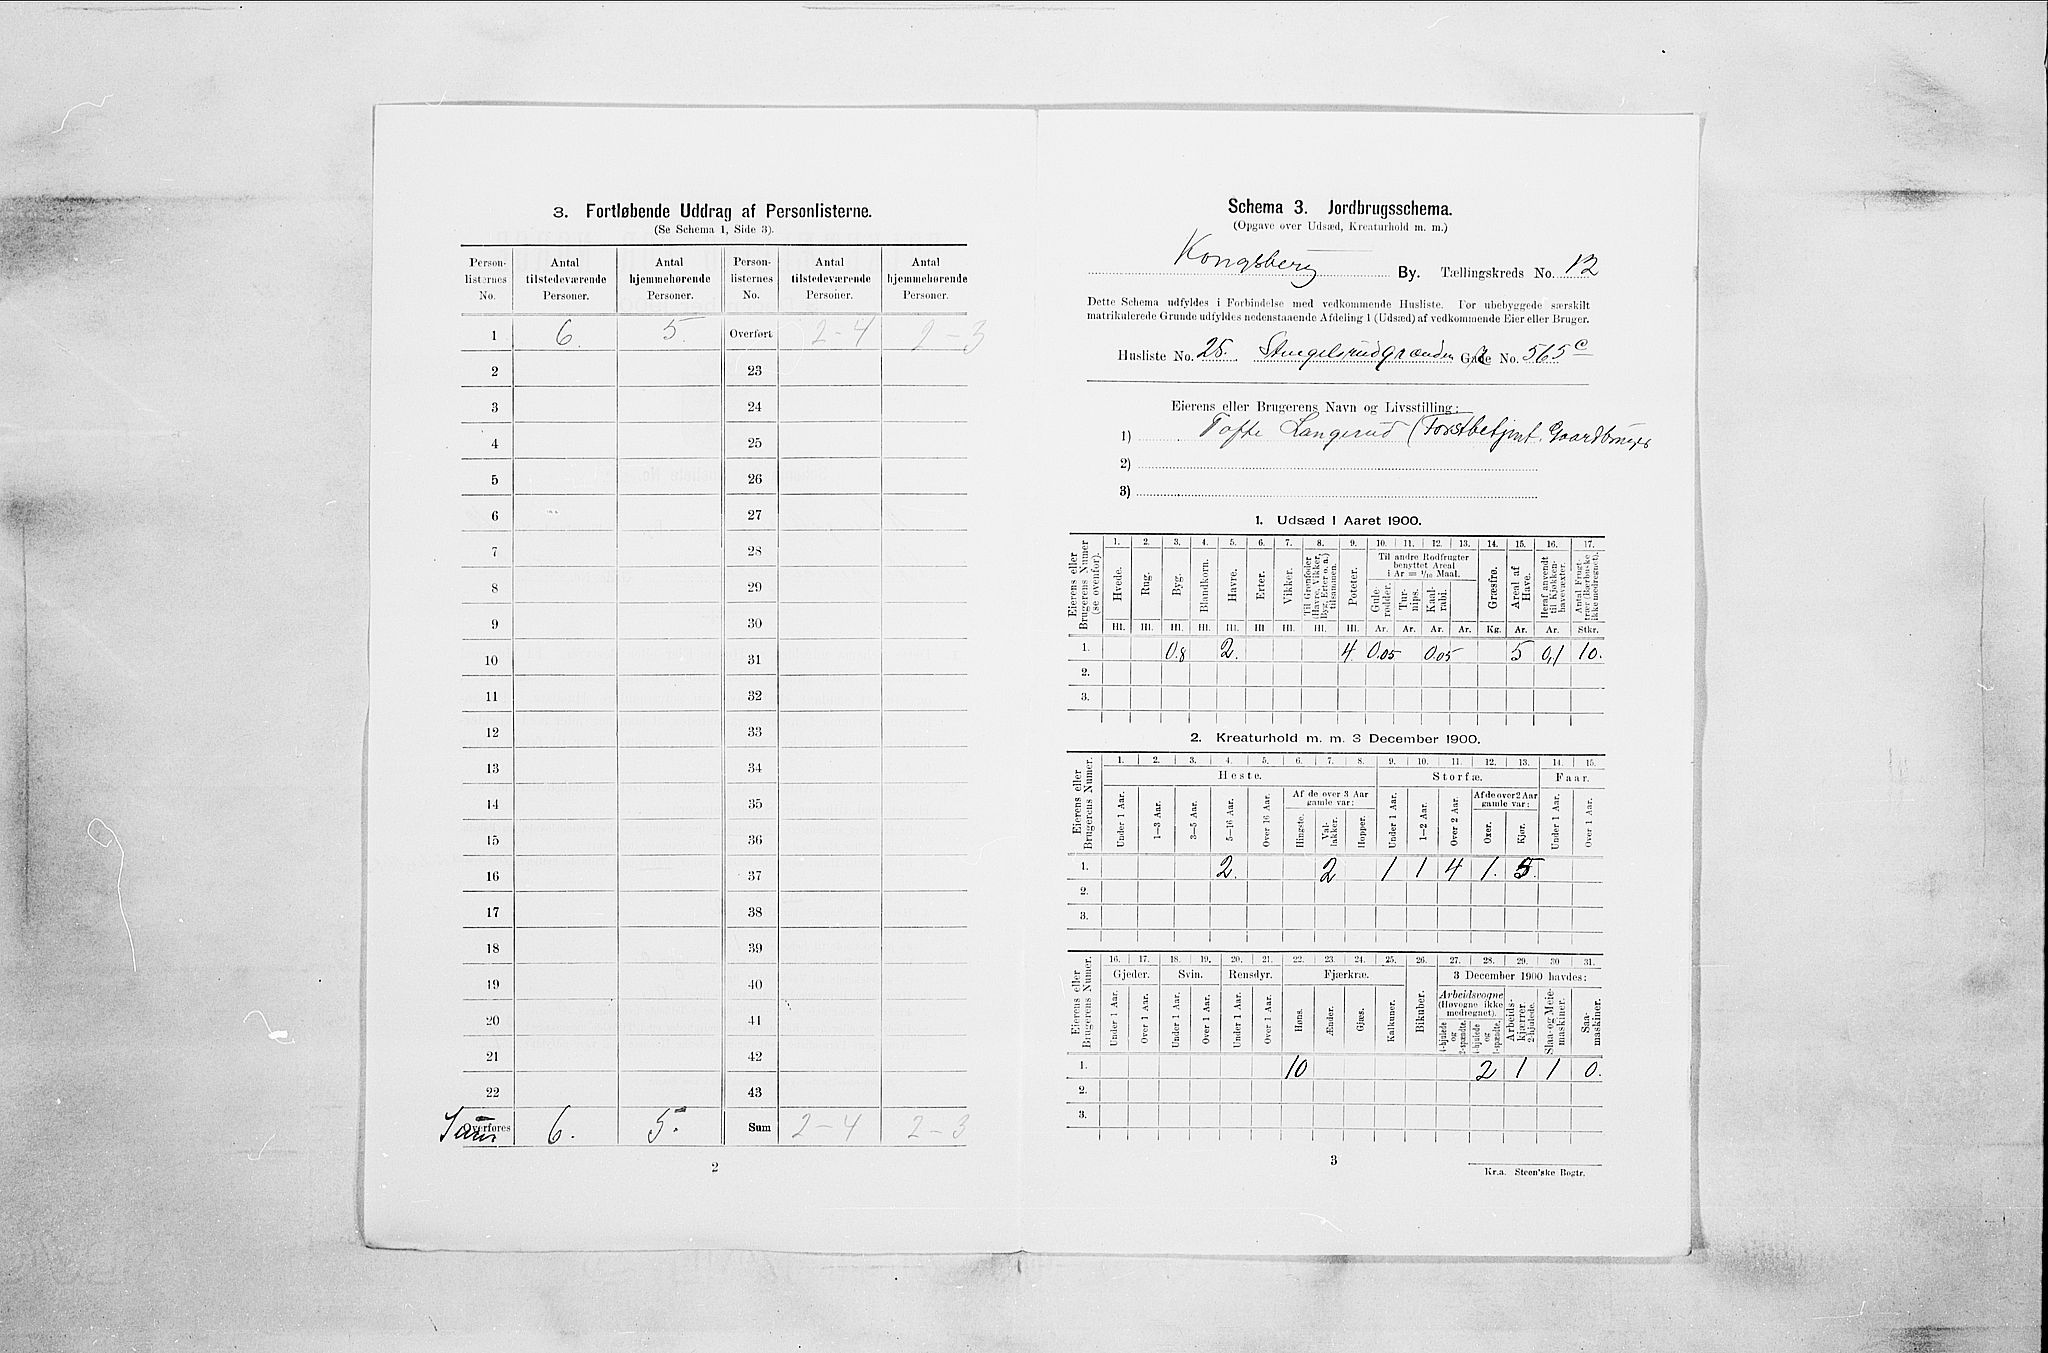 3. Fortløbende Uddrag af Personlisterne.
(Se Schema 1, Side 3).
Person-listernes No. | Antal tilstedeværende Personer. | Antal hjemmehørende Personer. | Person-listernes No. | Antal tilstedeværende Personer. | Antal hjemmehørende Personer.
1 | 6. | 5. | Overført | 2 – 4 | 2 – 3
2 23
3 24
4 25
5 26
6 27
7 28
8 29
9 30
10 31
11 32
12 33
13 34
14 35
15 36
16 37
17 38
18 39
19 40
20 41
21 42
22 43
Overføres Sum | 6. | 5. | Sum | 2 – 4 | 2 – 3
2
Schema 3. Jordbrugsschema.
(Opgave over Udsæd, Kreaturhold m. m.)
Kongsberg By. Tællingskreds No. 12
Dette Schema udfyldes i Forbindelse med vedkommende Husliste. For ubebyggede særskilt
matrikulerede Grunde udfyldes nedenstaaende Afdeling 1 (Udsæd) af vedkommende Eier eller Bruger.
Husliste No. 25. Stengelsrudgrænden Gade No. 565 c
Eierens eller Brugerens Navn og Livsstilling:
1) Tofte Langerud (Forstbetjent. Gaardbruger
2)
3)
1. Udsæd i Aaret 1900.
Eierens eller Brugerens Numer (se ovenfor).
1. 2. 3. 4. 5. 6. 7. 8. 9. 10. 11. 12. 13. 14. 15. 16. 17.
Hvede. Rug. Byg. Blandkorn. Havre. Erter. Vikker. Til Grønfoder (Havre, Vikker, Byg, Erter o. a.) tilsammen. Poteter. Til andre Rodfrugter benyttet Areal i Ar = 1/10 Maal. Gule-rødder. Tur-nips. Kaal-rabi. Græsfrø. Areal af Have. Heraf anvendt til Kjøkken-havevæxter. Antal Frugt-trær (Bærbuske ikke medregnet).
Hl. Hl. Hl. Hl. Hl. Hl. Hl. Hl. Hl. Ar. Ar. Ar. Ar. Kg. Ar. Ar. Stkr.
1. 0.8 2. 4. 0.05 0.05 5 0,1 10.
2.
3.
2. Kreaturhold m. m. 3 December 1900.
Eierens eller Brugerens Numer.
1. 2. 3. 4. 5. 6. 7. 8. 9. 10. 11. 12. 13. 14. 15.
Heste. Storfæ. Faar.
Under 1 Aar. 1–3 Aar. 3–5 Aar. 5–16 Aar. Over 16 Aar. Af de over 3 Aar gamle var: Hingste. Val-lakker. Hopper. Under 1 Aar. 1–2 Aar. Over 2 Aar. Af de over 2 Aar gamle var: Oxer. Kjør. Under 1 Aar. Over 1 Aar.
1. 2. 2 1 1 4 1. 5.
2.
3.
Eierens eller Brugerens Numer.
16. 17. 18. 19. 20. 21. 22. 23. 24. 25. 26. 27. 28. 29. 30 31.
Gjeder. Svin. Rensdyr. Fjærkræ. Bikuber. 3 December 1900 havdes:
Under 1 Aar. Over 1 Aar. Under 1 Aar. Over 1 Aar. Under 1 Aar. Over 1 Aar. Høns. Ænder. Gjæs. Kalkuner. Arbeidsvogne (Høvogne ikke medregnet). 4-hjulede og 2-spændte. 4-hjulede og 1-spændte. Arbeids-kjærrer 2-hjulede. Slaa- og Meie-maskiner. Saa-maskiner.
1. 10 2 1 1 0.
2.
3.
3
Kr.a. Steen'ske Bogtr.